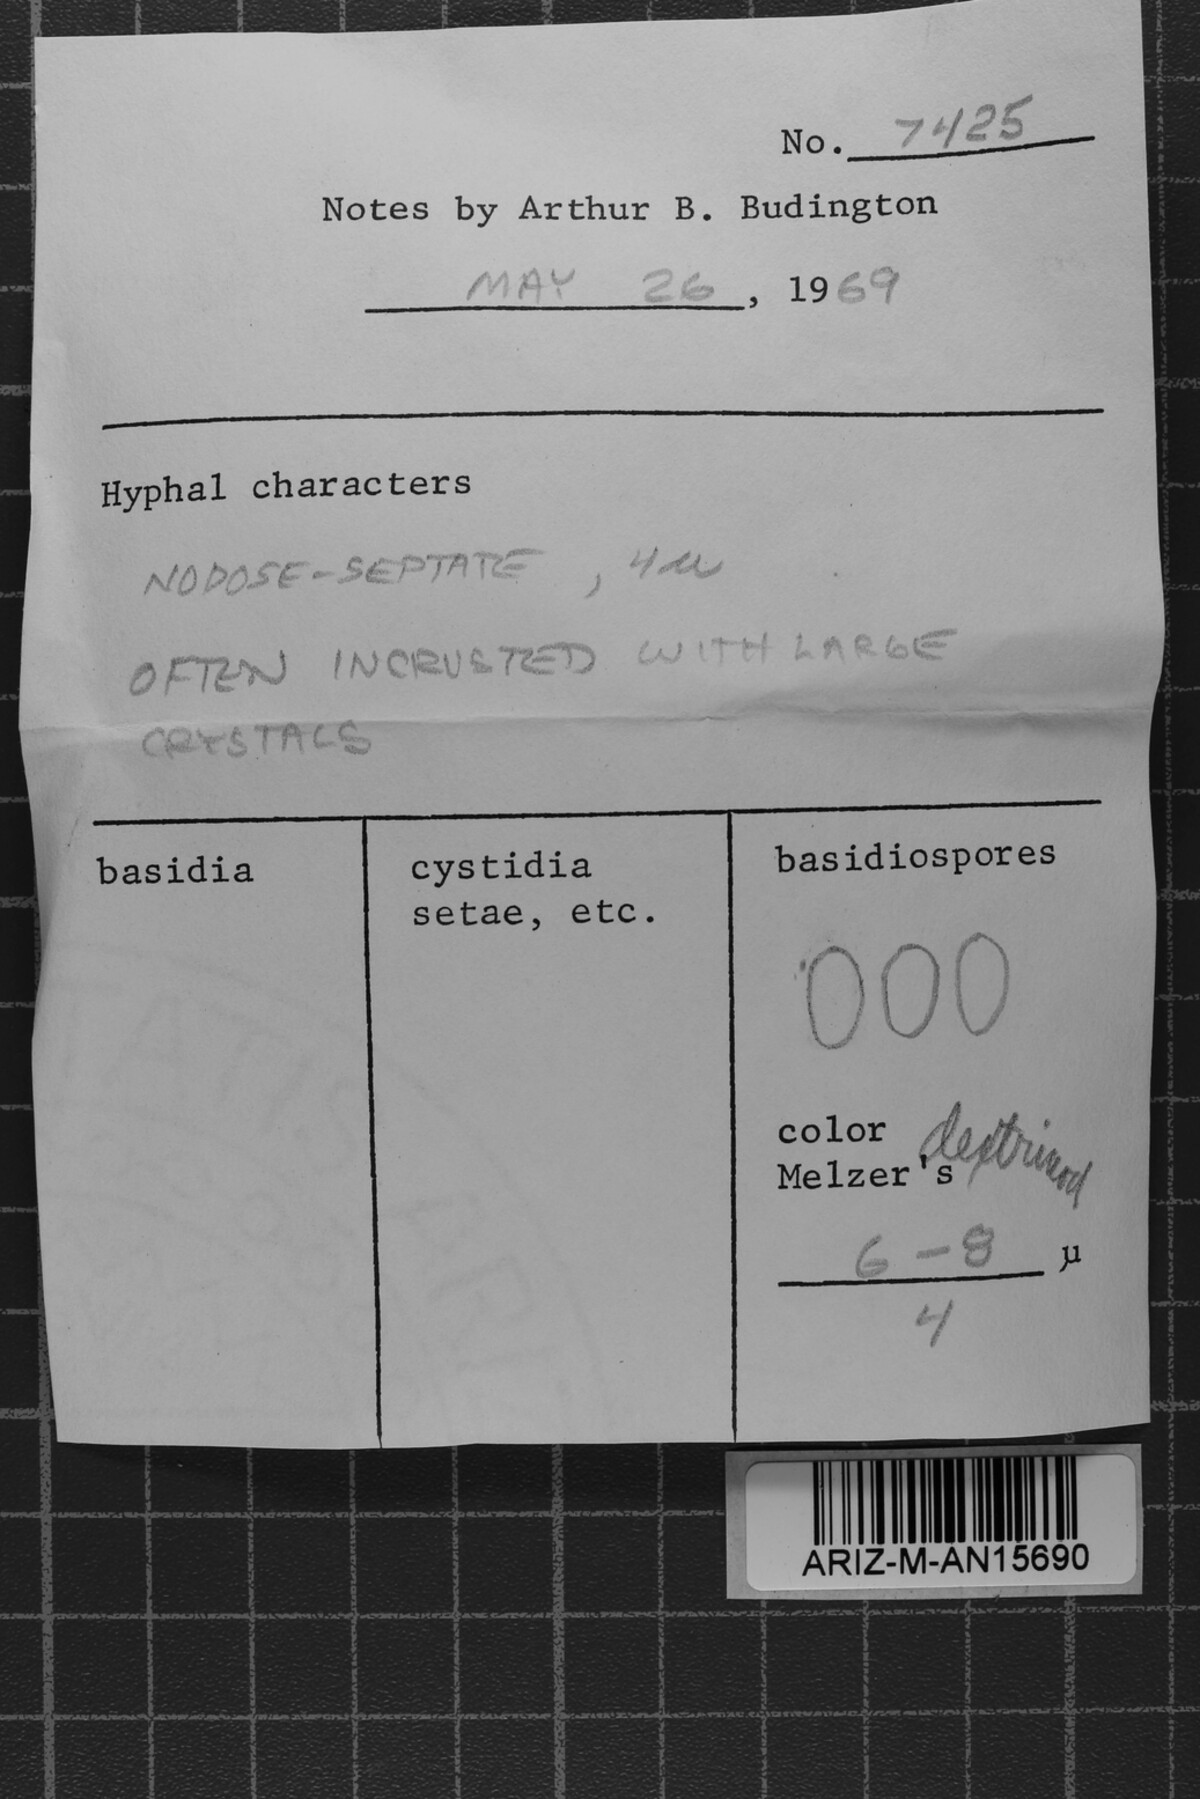 No. 7425
Notes by Arthur B. Budington
MAY 26, 1969
Hyphal characters
NODOSE-SEPTATE, 4µ
OFTEN INCRUSTED WITH LARGE
CRYSTALS
basidia
cystidia
setae, etc.
basidiospores
color
Melzer's dextrinoid
6-8 µ
4
ARIZ-M-AN15690